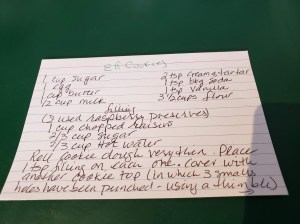 Cookies
1 cup sugar 2 tsp cream of tartar
1 egg 1 tsp bkg soda
1 cup butter 1 tsp vanilla
1/2 cup milk 3 1/2 cups flour
filling
(I used raspberry preserves)
1 cup chopped raisins
2/3 cup sugar
2/3 cup hot water
Roll cookie dough very thin. Place
1 tsp filling on each one. Cover with
another cookie top (in which 3 small
holes have been punched - using a thimble)